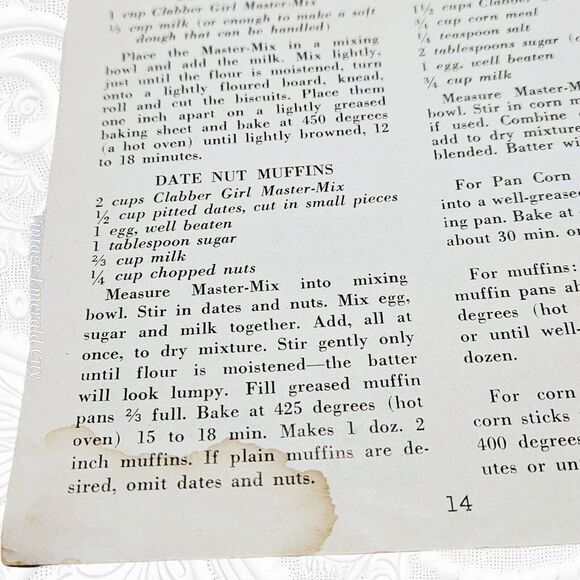 1 cup Clabber Girl Master-Mix
⅓ cup milk (or enough to make a soft
dough that can be handled)
Place the Master-Mix in a mixing
bowl and add the milk. Mix lightly,
just until the flour is moistened, turn
onto a lightly floured board, knead,
roll and cut the biscuits. Place them
one inch apart on a lightly greased
baking sheet and bake at 450 degrees
(a hot oven) until lightly browned, 12
to 18 minutes.
DATE NUT MUFFINS
2 cups Clabber Girl Master-Mix
½ cup pitted dates, cut in small pieces
1 egg, well beaten
1 tablespoon sugar
⅔ cup milk
¼ cup chopped nuts
Measure Master-Mix into mixing
bowl. Stir in dates and nuts. Mix egg,
sugar and milk together. Add, all at
once, to dry mixture. Stir gently only
until flour is moistened—the batter
will look lumpy. Fill greased muffin
pans ⅔ full. Bake at 425 degrees (hot
oven) 15 to 18 min. Makes 1 doz. 2
inch muffins. If plain muffins are de-
sired, omit dates and nuts.
1½ cups Clabber
¾ cup corn meal
¼ teaspoon salt
2 tablespoons sugar
1 egg, well beaten
¾ cup milk
Measure Master-M
bowl. Stir in corn m
if used. Combine
add to dry mixture
blended. Batter wi
For Pan Corn
into a well-grease
ing pan. Bake at
about 30 min. o
For muffins:
muffin pans ab
degrees (hot
or until well-
dozen.
For corn
corn sticks
400 degrees
utes or un
14
Vintage Emerald City